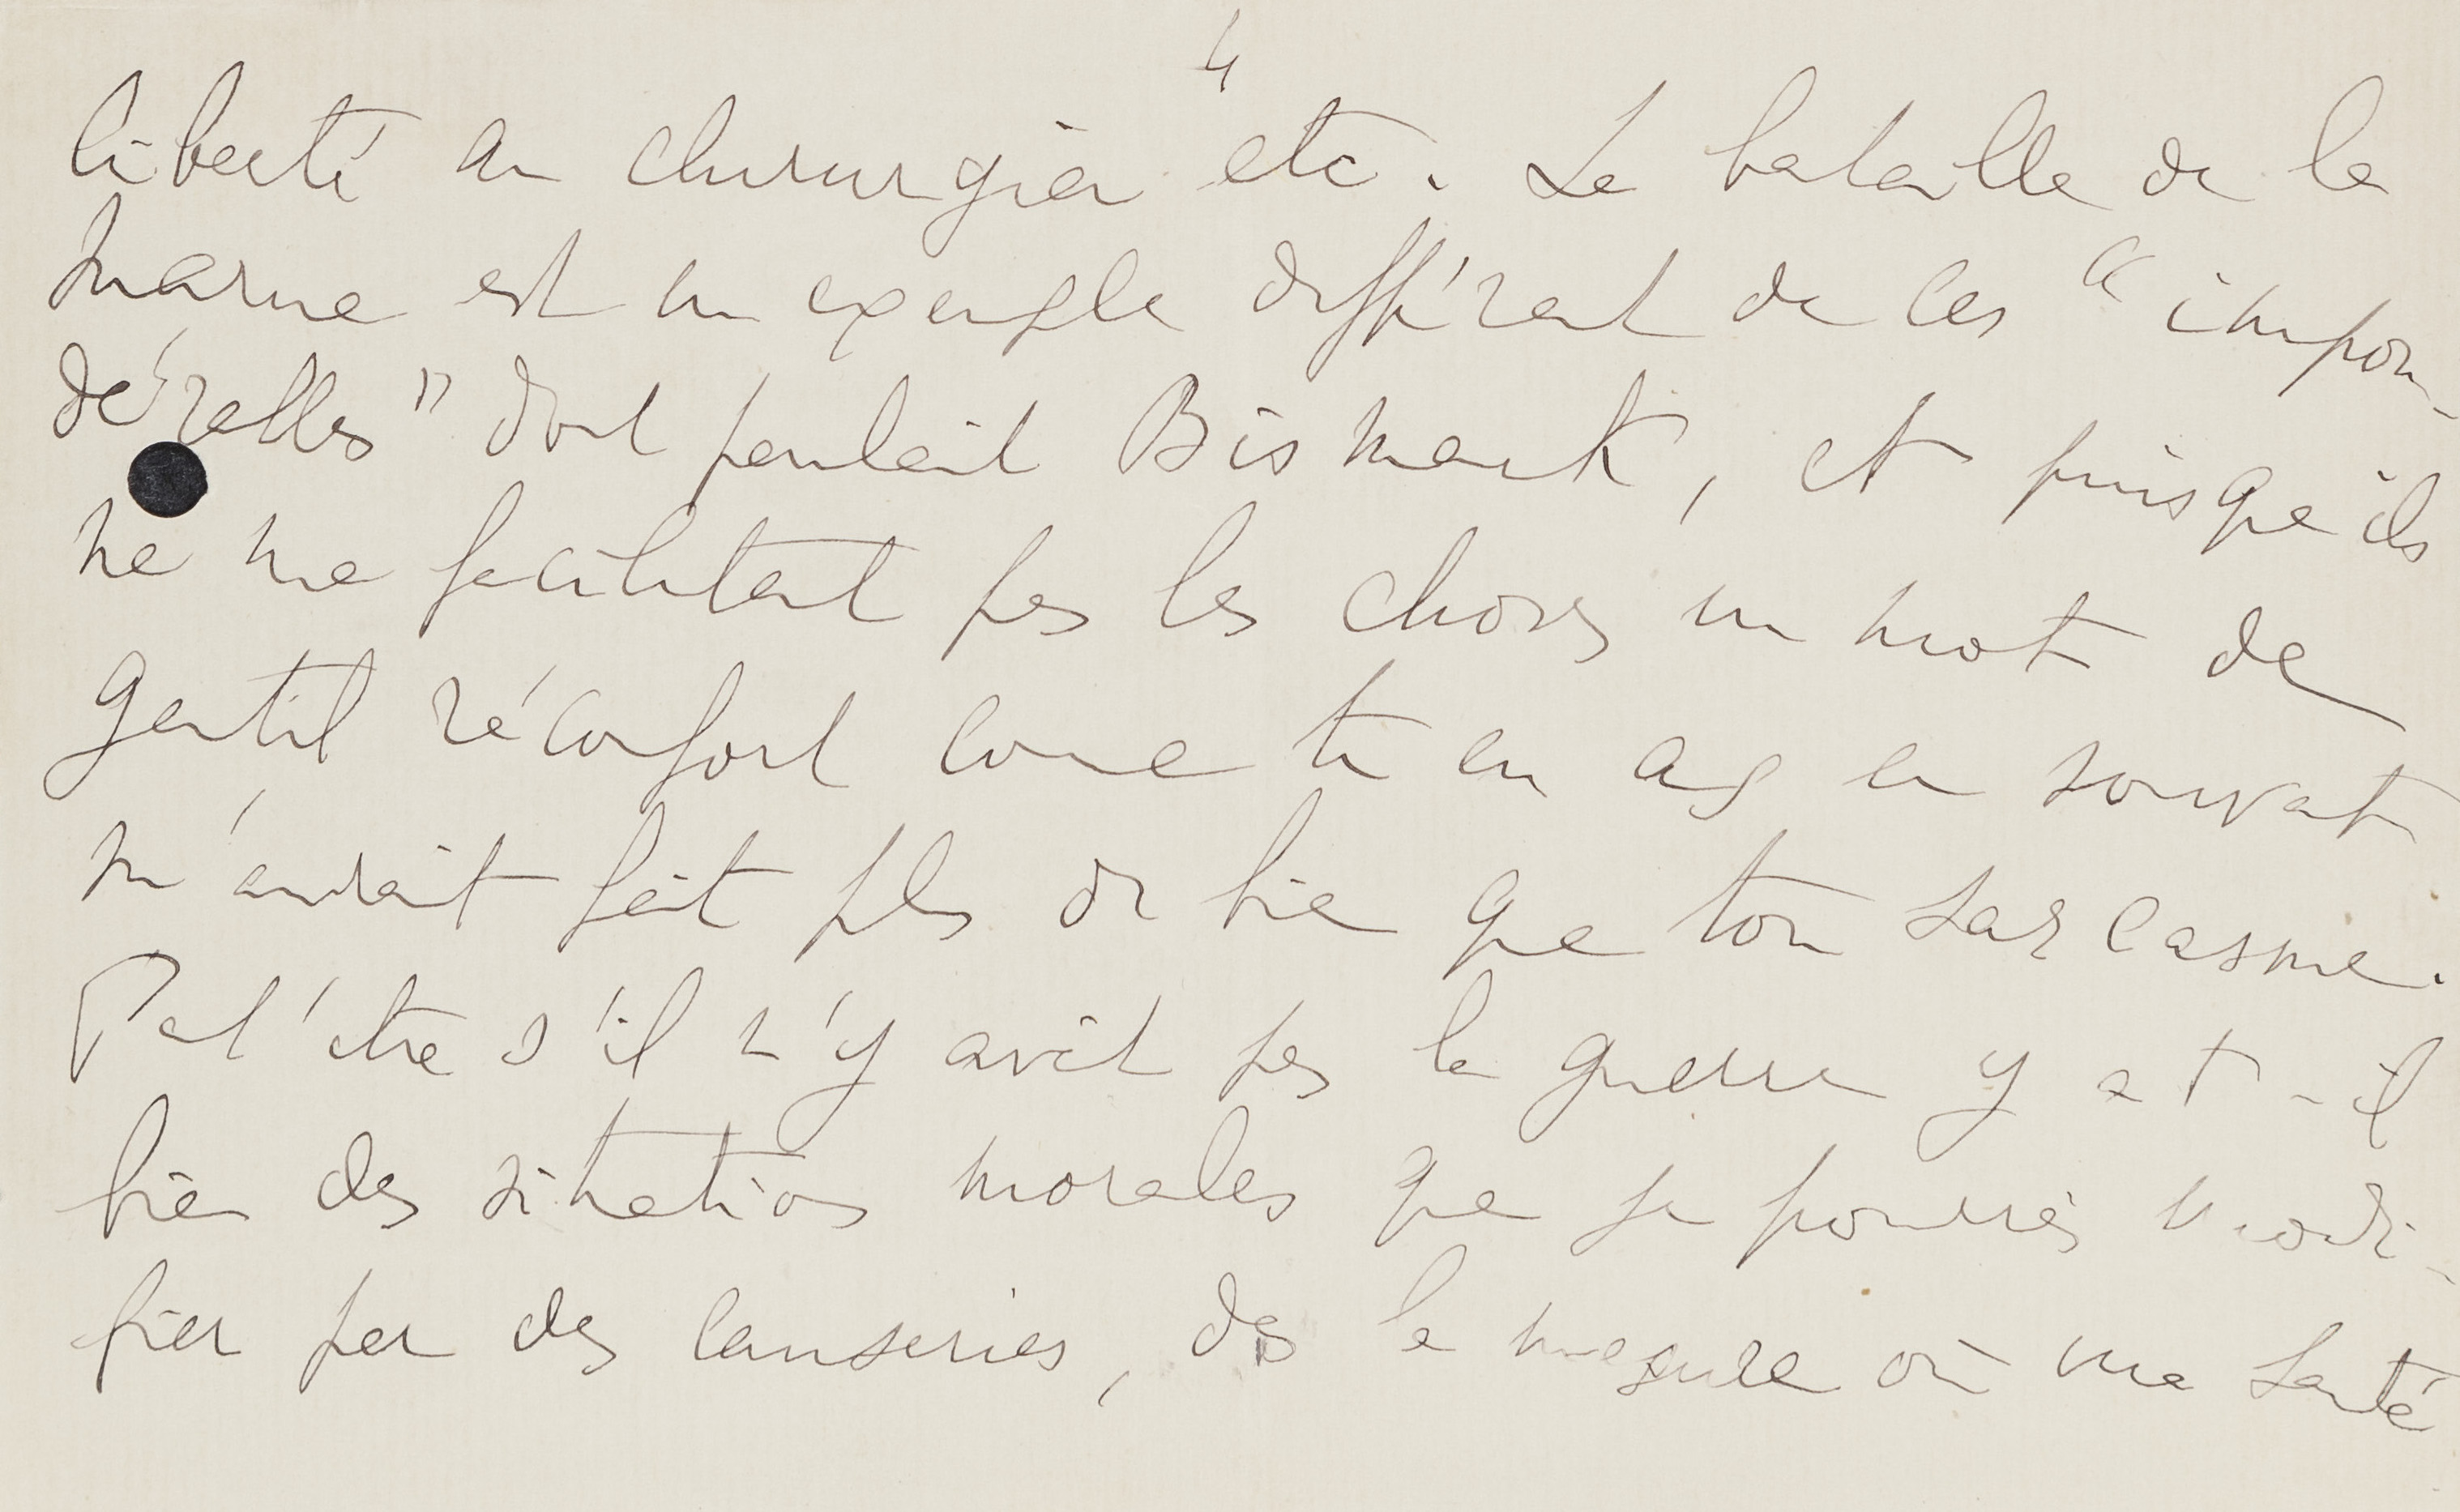 4
liberté au chirurgien etc. La bataille de la
Marne est un exemple différent de ces "impon-
dérables" dont parlait Bismark, et puisque ils
ne me facilitent pas les choses un mot de
gentil réconfort comme tu en as eu souvent
m'aurait fait plus de bien que ton sarcasme.
Peut'être s'il n'y avait pas la guerre y a t-il
bien des situations morales que je pourrais modi-
fier par des causeries, dans la mesure où ma santé